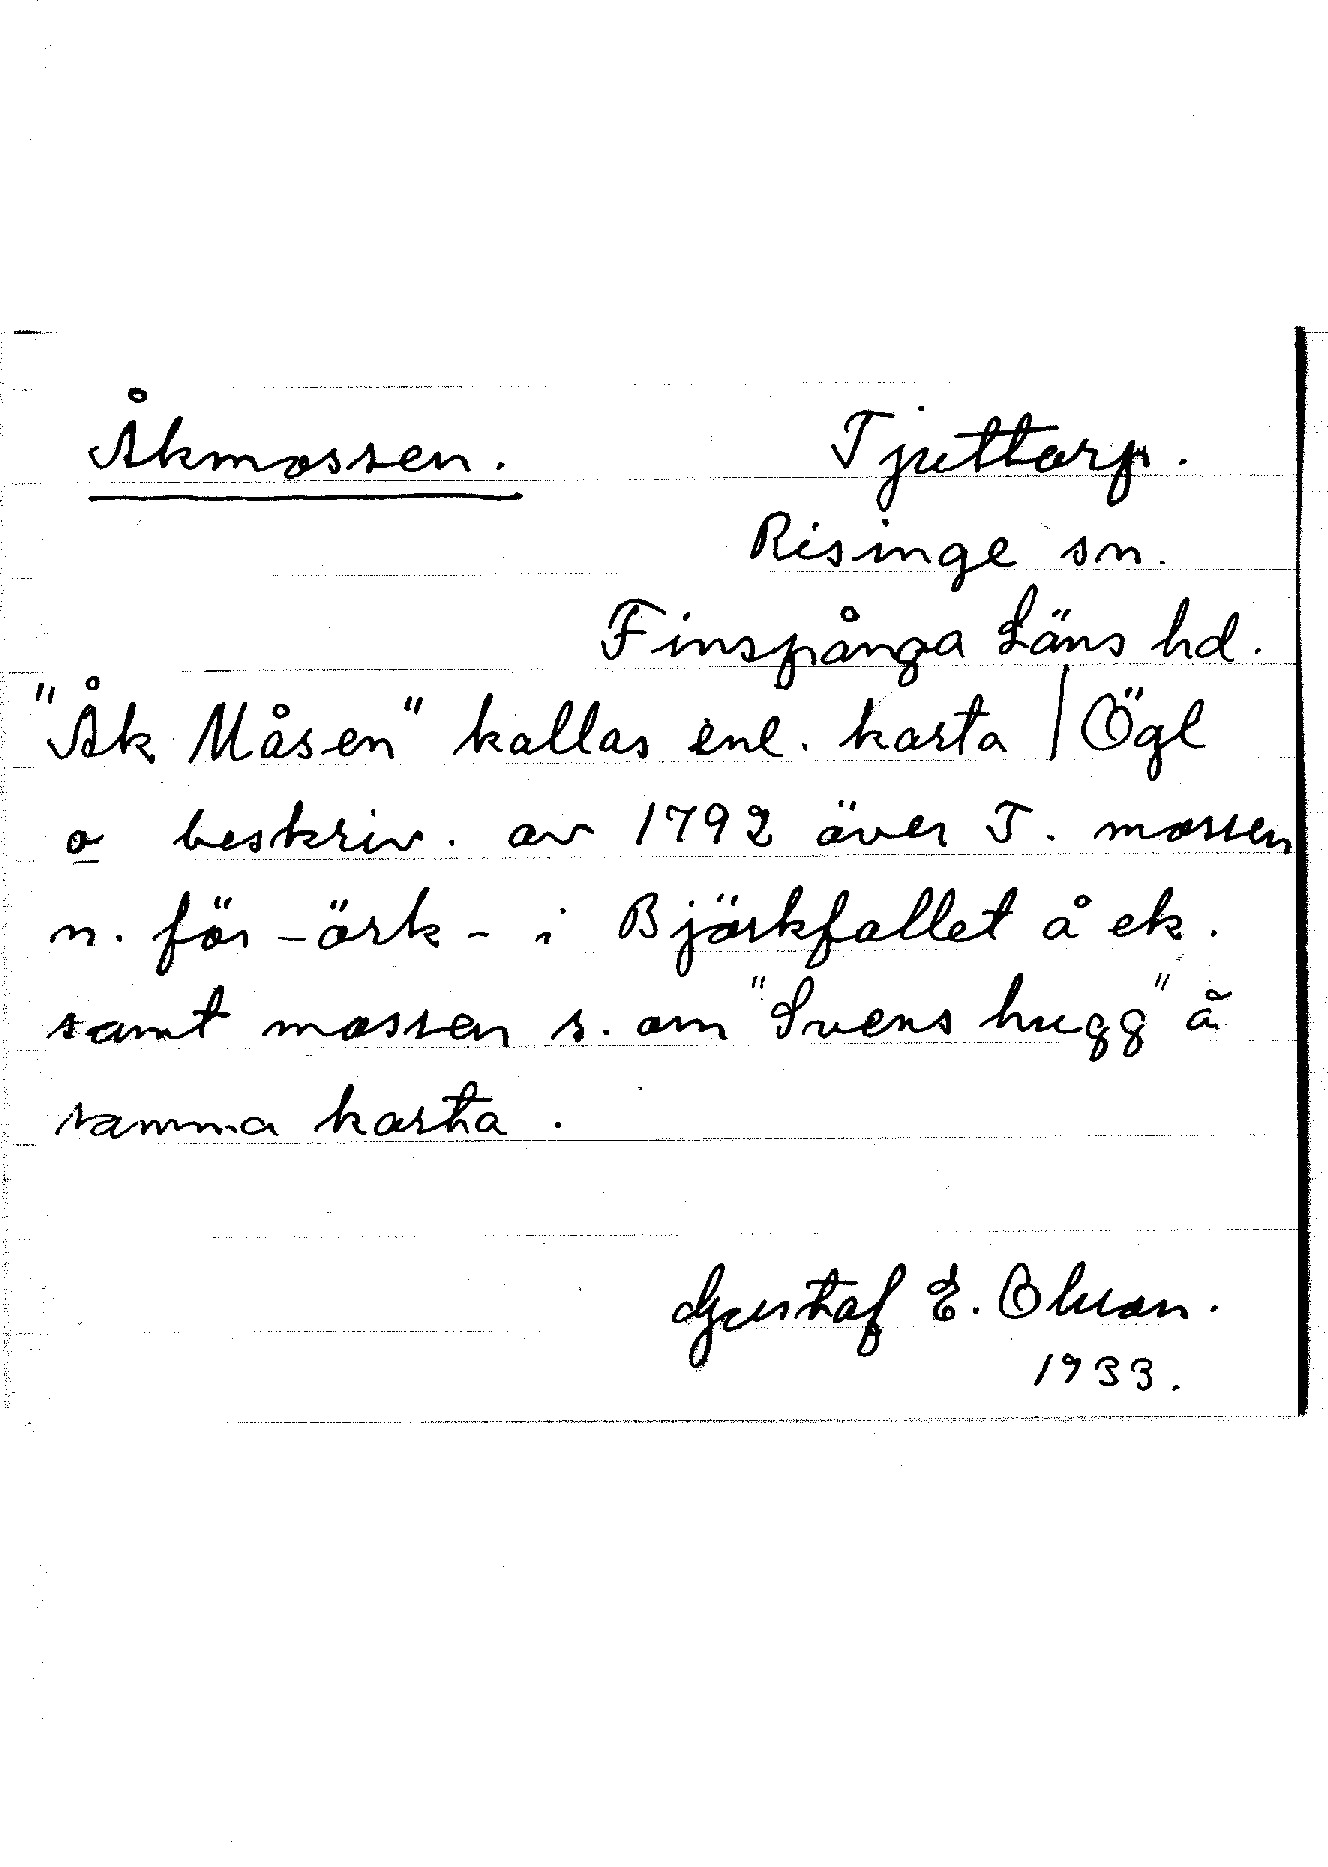 Åkmossen. Tjuttorp.
Risinge sn.
Finspånga Läns hd.
"Åk Måsen" kallas enl. karta | Ögl
o beskriv. av 1792 över T. mossen
n. för -örk- i Björkfallet å ek.
samt mossen s. om "Svens hugg" å
samma karta.
Gustaf E. Olsson.
1933.